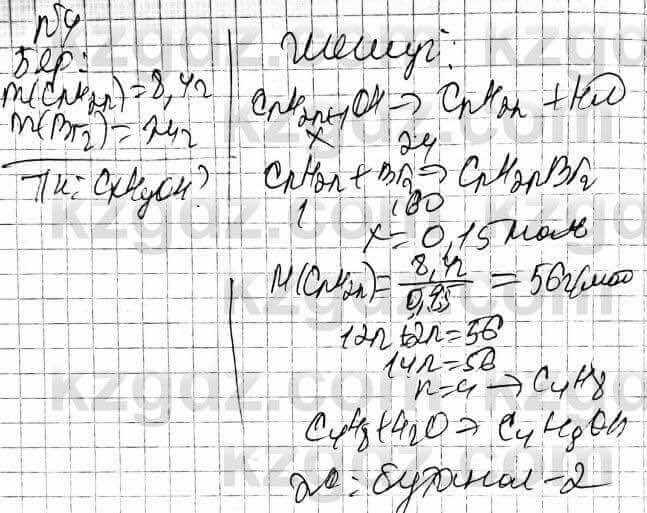 №4
Бер:
m(CnH2n)=8,4г
m(Br2)=24г
Тк: CxHyOH?
Шешуі:
CnH2n+1OH → CnH2n + H2O
x 24
CnH2n + Br2 → CnH2nBr2
1 160
x = 0,15 моль
M(CnH2n) = 8,4г / 0,15 = 56г/моль
12n+2n=56
14n=56
n=4 → C4H8
C4H8+H2O → C4H9OH
бутанол-2
kzgdz.com